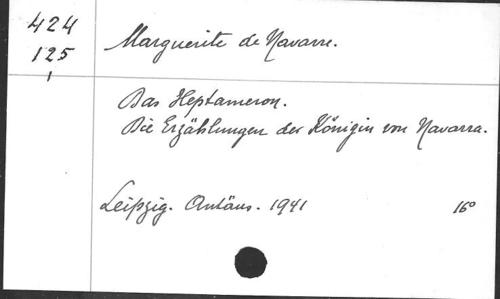 424
125
Marguerite de Navarre.
Das Heptameron.
Die Erzählungen der Königin von Navarra.
Leipzig. Antäus. 1941 16°